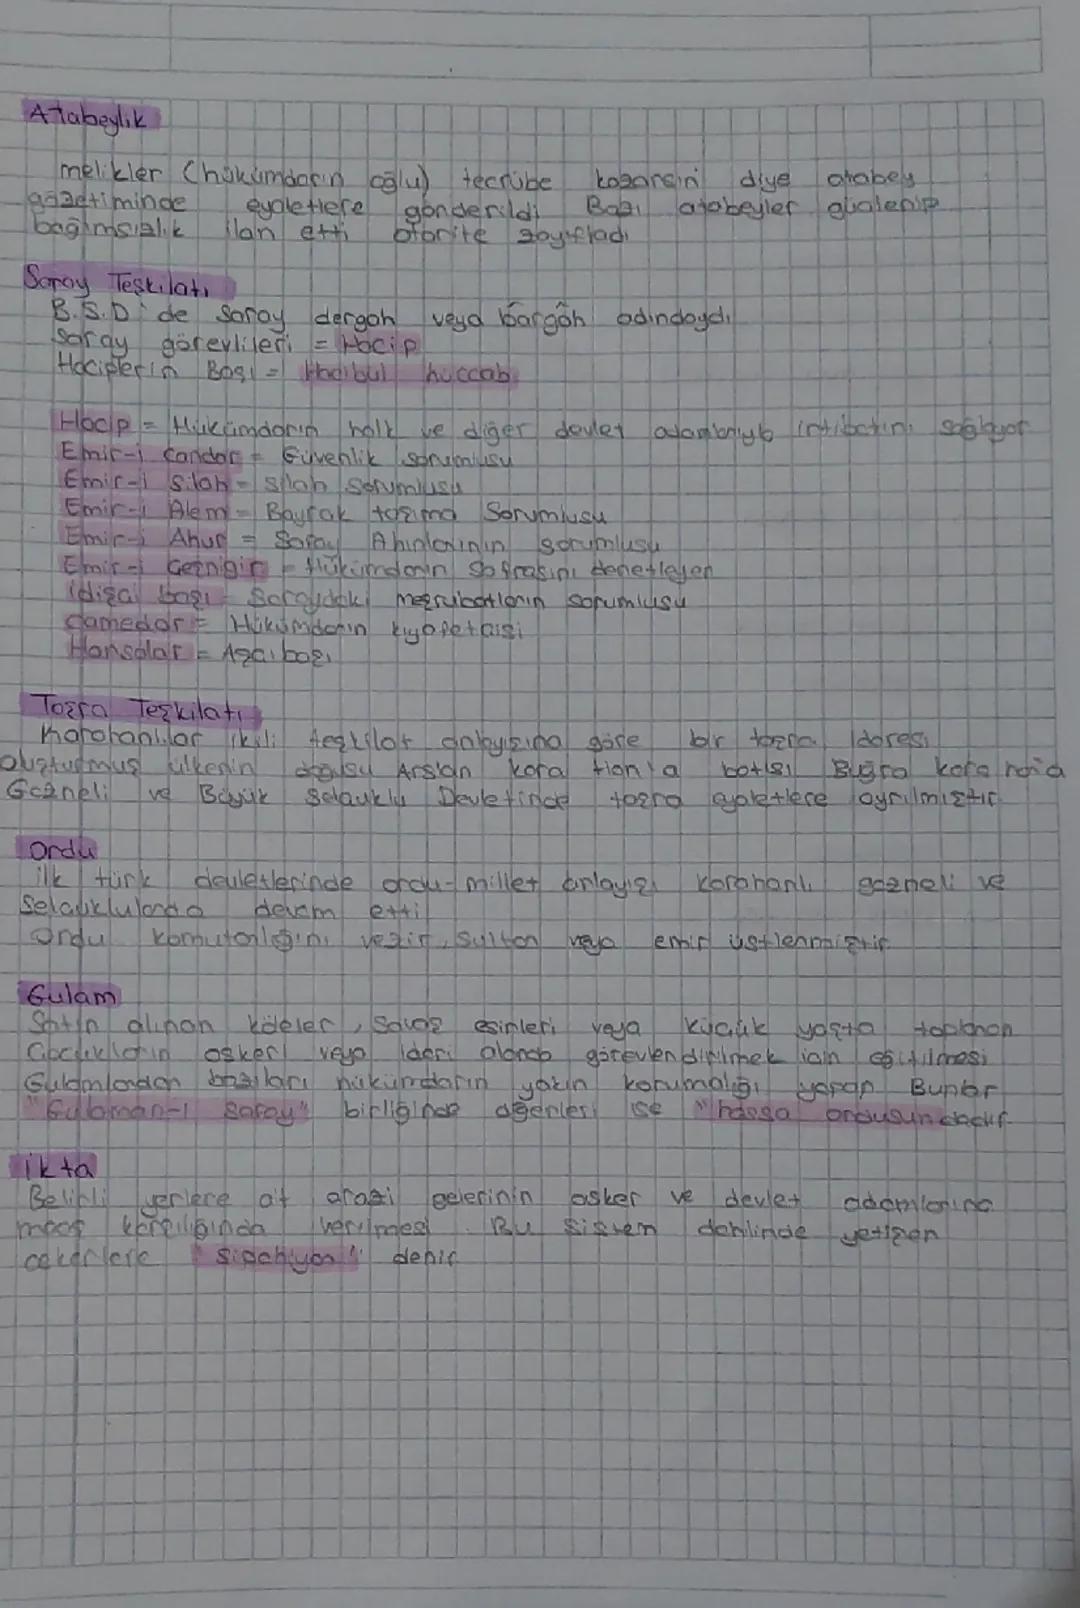 Atabeylik
melikler (hükümdarın oğlu) tecrübe kazansın diye atabey
gözetiminde eyaletlere gönderildi Bazı atabeyler güçlenip
bağımsızlık ilan etti otorite zayıfladı
Saray Teşkilatı
B.S.D'de saray dergah veya bargâh adındaydı
saray görevlileri = Hacip
Haciplerin Başı = Hacibul huccab
Hacip = Hükümdarın halk ve diğer devlet adamlarıyla irtibatını sağlıyor
Emir-i Candar = Güvenlik sorumlusu
Emir-i Silah = silah sorumlusu
Emir-i Alem = Bayrak taşıma Sorumlusu
Emir-i Ahur = Saray Ahırlarının sorumlusu
Emir-i Çeşnigir = Hükümdarın Sofrasını denetleyen
idişçi başı = Saraydaki meşrubatların sorumlusu
camedar = Hükümdarın kıyafetçisi
Hansalar = Aşçıbaşı
Taşra Teşkilatı
Karahanlılar ikili teşkilat anlayışına göre bir taşra idaresi
oluşturmuş ülkenin doğusu Arslan kara Han'a batısı Buğra kara han'a
Gazneli ve Büyük Selçuklu Devletinde taşra eyaletlere ayrılmıştır
Ordu
ilk türk devletlerinde ordu-millet anlayışı Karahanlı gazneli ve
Selçuklularda devam etti
Ordu komutanlığını vezir, Sultan veya emir üstlenmiştir
Gulam
Satın alınan köleler, Savaş esirleri veya küçük yaşta toplanan
Çocukların askeri veya idari alanda görevlendirilmek için eğitilmesi
Gulamlardan bazıları hükümdarın yakın korumalığı yapan Bunlar
"Gulaman-ı Saray" birliğinde diğerleri ise "hassa ordusundadır
ikta
Belirli yerlere ait arazi gelerinin asker ve devlet adamlarına
maaş karşılığında verilmesi. Bu sistem dahilinde yetişen
askerlere "Sipahiyan" denir